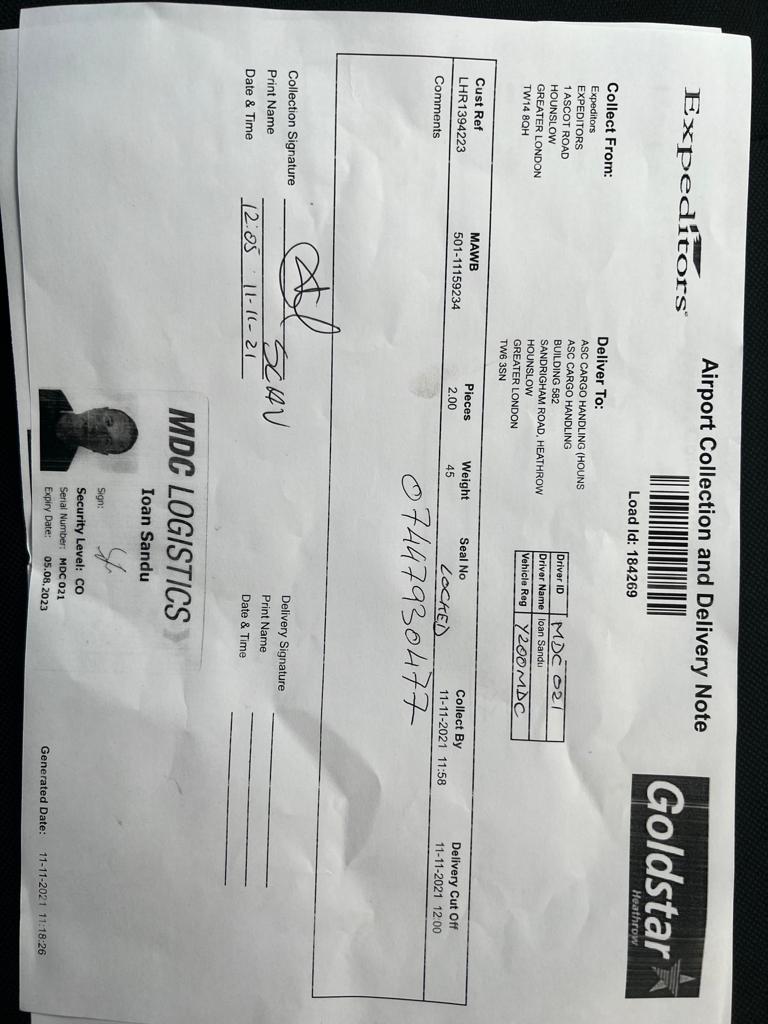 Expeditors
Airport Collection and Delivery Note
Load Id: 184269
Goldstar
Heathrow
Collect From:
Expeditors
EXPEDITORS
1 ASCOT ROAD
HOUNSLOW
GREATER LONDON
TW14 8QH
Deliver To:
ASC CARGO HANDLING (HOUNS
ASC CARGO HANDLING
BUILDING 582
SANDRIGHAM ROAD, HEATHROW
HOUNSLOW
GREATER LONDON
TW6 3SN
Driver ID MDC 021
Driver Name Ioan Sandu
Vehicle Reg Y200MDC
Cust Ref MAWB Pieces Weight Seal No Collect By Delivery Cut Off
LHR1394223 501-11159234 2.00 45 LOCKED 11-11-2021 11:58 11-11-2021 12:00
Comments
07447930477
Collection Signature
Print Name
Date & Time 12:05 11-11-21
Delivery Signature
Print Name
Date & Time
MDC LOGISTICS
Ioan Sandu
Sign:
Security Level: CO
Serial Number: MDC 021
Expiry Date: 05.08.2023
Generated Date: 11-11-2021 11:18:26